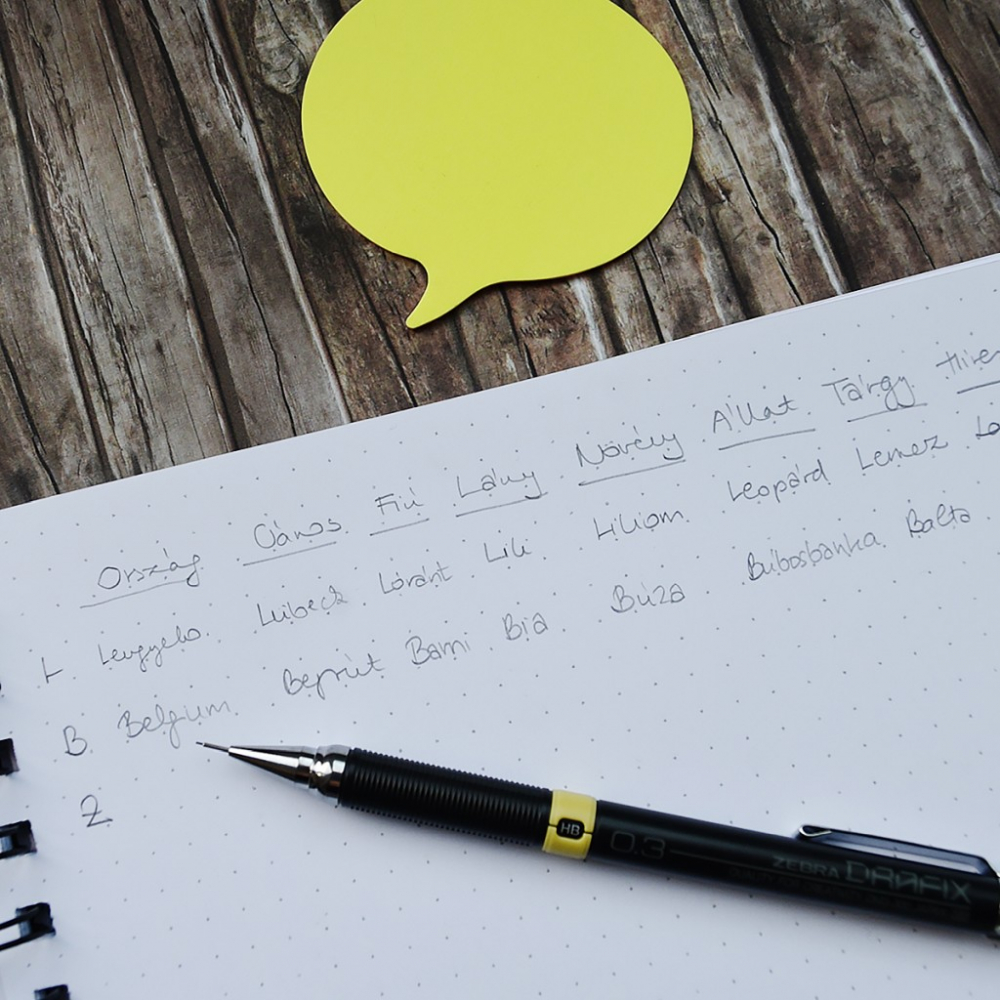 Ország Város Fiú Lány Növény Állat Tárgy Híre
L Lengyelo. Lübeck Lóránt Lili Liliom Leopárd Lemez Lo
B Belgium Bejrút Barni Bia Búza Búbosbanka Balta
Z
HB
0.3
ZEBRA DRAFIX